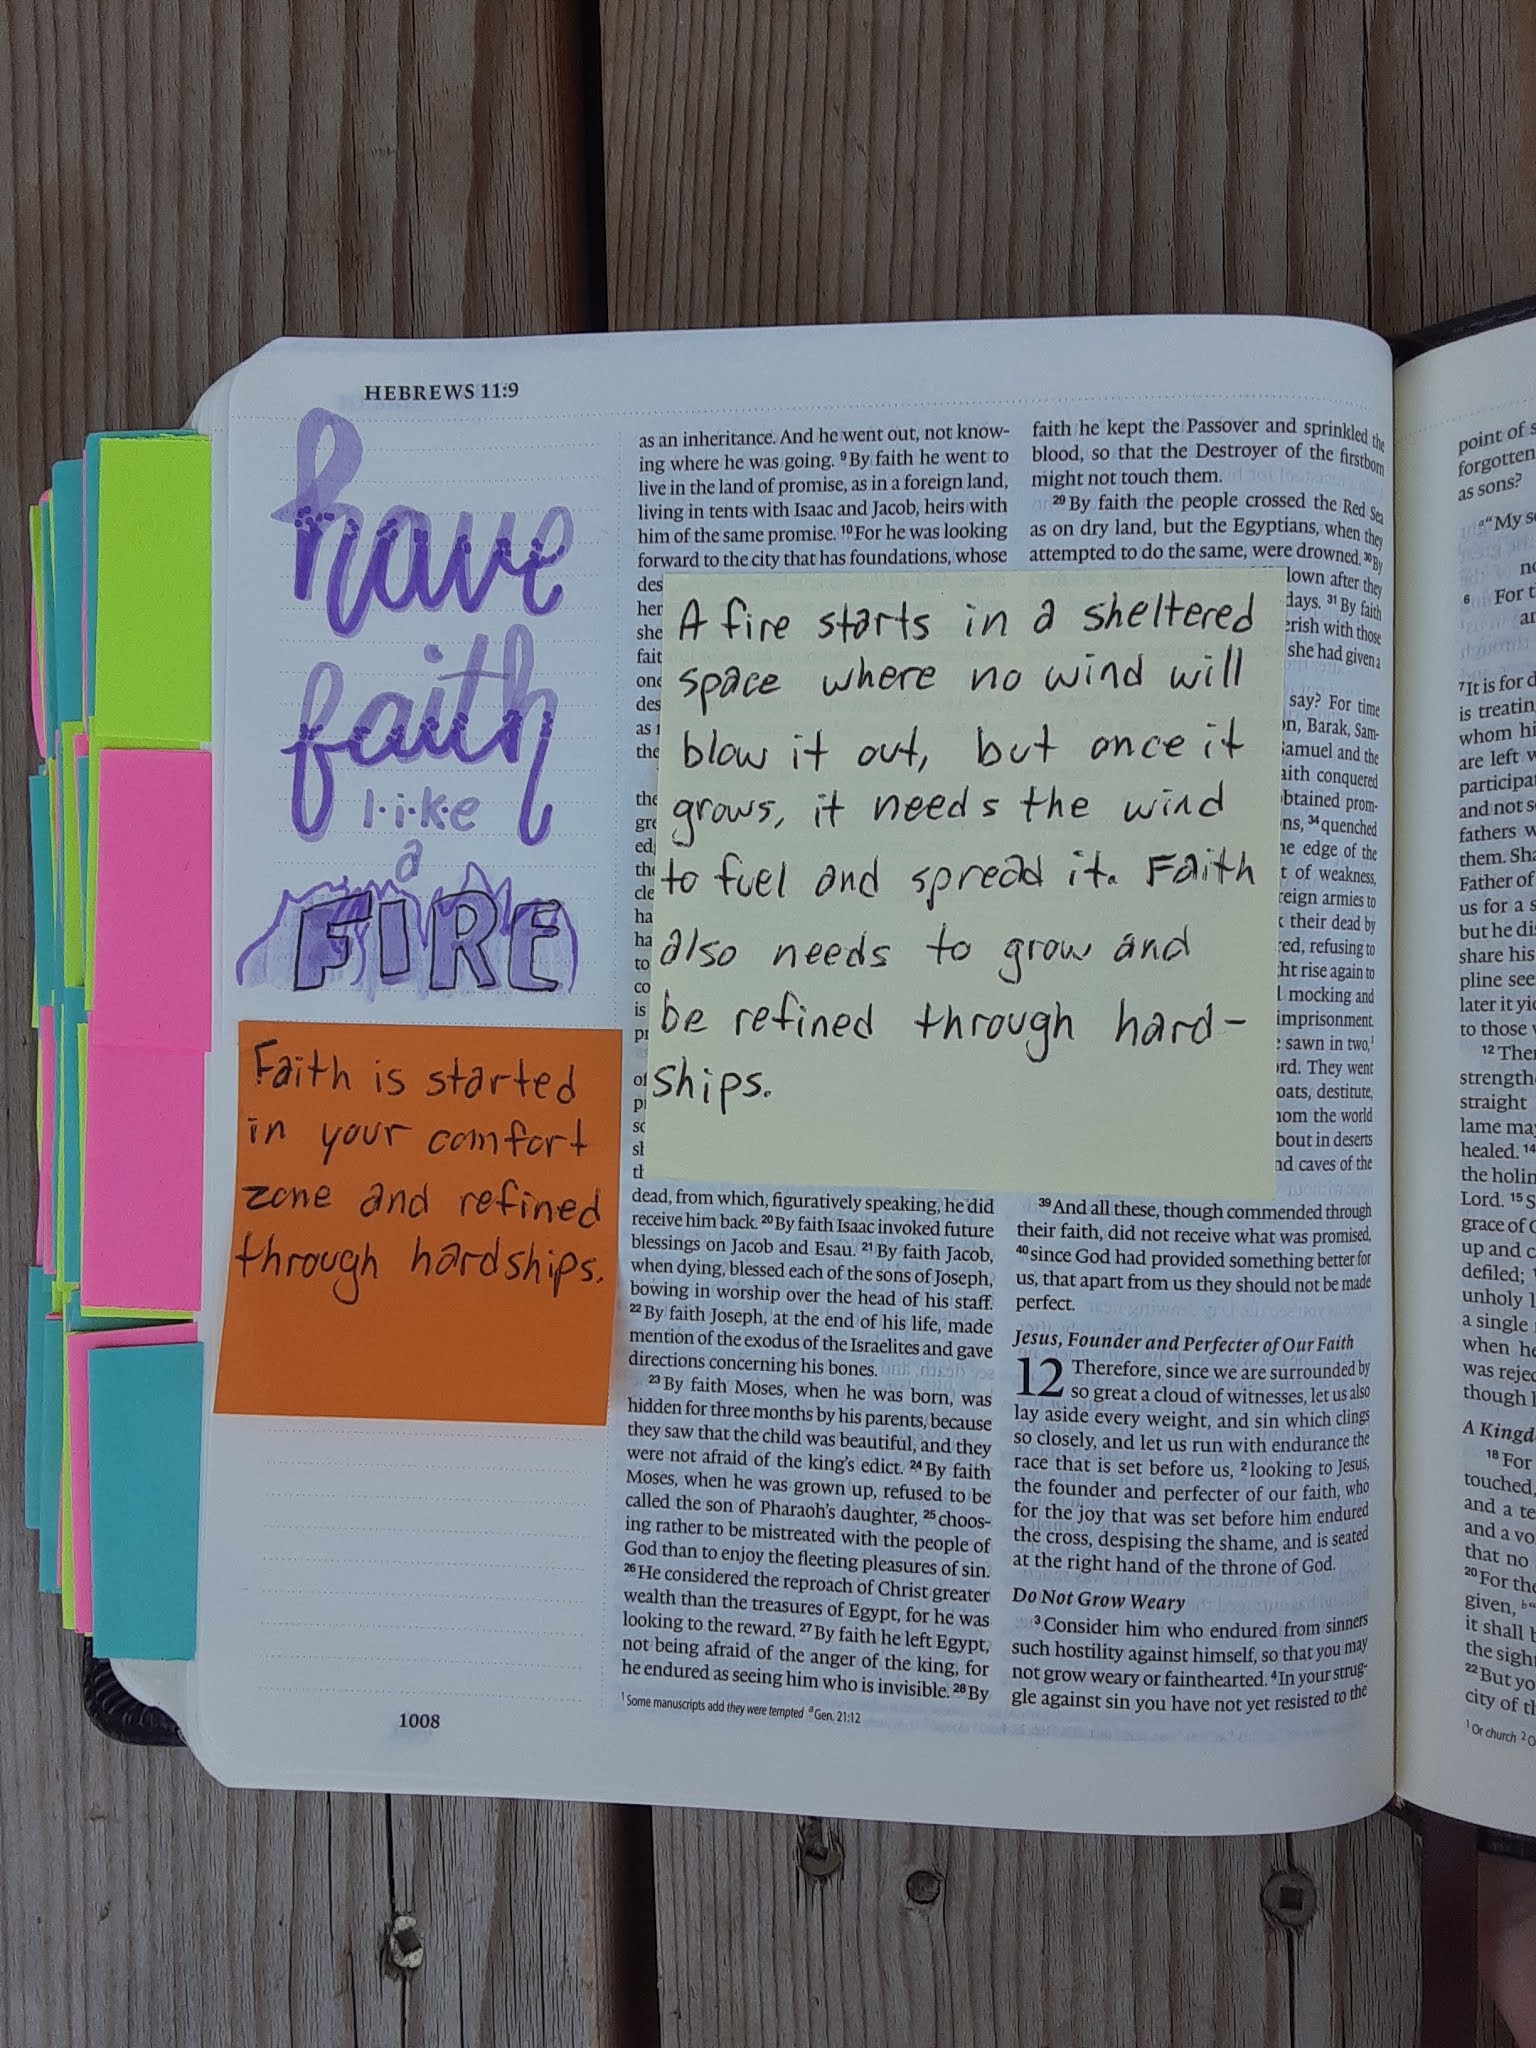 HEBREWS 11:9
have
faith
l·i·k·e
a
FIRE
Faith is started
in your comfort
zone and refined
through hardships.
1008
as an inheritance. And he went out, not know-
ing where he was going. ⁹By faith he went to
live in the land of promise, as in a foreign land,
living in tents with Isaac and Jacob, heirs with
him of the same promise. ¹⁰For he was looking
forward to the city that has foundations, whose
des
her
she
fait
one
des
as
the
A fire starts in a sheltered
space where no wind will
blow it out, but once it
grows, it needs the wind
to fuel and spread it. Faith
also needs to grow and
be refined through hard-
ships.
dead, from which, figuratively speaking, he did
receive him back. ²⁰By faith Isaac invoked future
blessings on Jacob and Esau. ²¹By faith Jacob,
when dying, blessed each of the sons of Joseph,
bowing in worship over the head of his staff.
²²By faith Joseph, at the end of his life, made
mention of the exodus of the Israelites and gave
directions concerning his bones.
²³By faith Moses, when he was born, was
hidden for three months by his parents, because
they saw that the child was beautiful, and they
were not afraid of the king's edict. ²⁴By faith
Moses, when he was grown up, refused to be
called the son of Pharaoh's daughter, ²⁵choos-
ing rather to be mistreated with the people of
God than to enjoy the fleeting pleasures of sin.
²⁶He considered the reproach of Christ greater
wealth than the treasures of Egypt, for he was
looking to the reward. ²⁷By faith he left Egypt,
not being afraid of the anger of the king, for
he endured as seeing him who is invisible. ²⁸By
faith he kept the Passover and sprinkled the
blood, so that the Destroyer of the firstborn
might not touch them.
²⁹By faith the people crossed the Red Sea
as on dry land, but the Egyptians, when they
attempted to do the same, were drowned. ³⁰By
down after they
days. ³¹By faith
erish with those
she had given a
say? For time
on, Barak, Sam-
Samuel and the
aith conquered
obtained prom-
ns, ³⁴quenched
he edge of the
t of weakness,
reign armies to
k their dead by
red, refusing to
ht rise again to
mocking and
imprisonment.
sawn in two,¹
rd. They went
oats, destitute,
hom the world
bout in deserts
nd caves of the
³⁹And all these, though commended through
their faith, did not receive what was promised,
⁴⁰since God had provided something better for
us, that apart from us they should not be made
perfect.
Jesus, Founder and Perfecter of Our Faith
12 Therefore, since we are surrounded by
so great a cloud of witnesses, let us also
lay aside every weight, and sin which clings
so closely, and let us run with endurance the
race that is set before us, ²looking to Jesus,
the founder and perfecter of our faith, who
for the joy that was set before him endured
the cross, despising the shame, and is seated
at the right hand of the throne of God.
Do Not Grow Weary
³Consider him who endured from sinners
such hostility against himself, so that you may
not grow weary or fainthearted. ⁴In your strug-
gle against sin you have not yet resisted to the
¹Some manuscripts add they were tempted ᵃGen. 21:12
point of s
forgotten
as sons?
ᵃ"My s
no
⁶ For t
an
⁷It is for d
is treatin
whom hi
are left w
participa
and not s
fathers w
them. Sha
Father of
us for a s
but he dis
share his
pline see
later it yi
to those
¹²Ther
strengthe
straight
lame ma
healed. ¹⁴
the holin
Lord. ¹⁵S
grace of G
up and c
defiled;
unholy l
a single
when he
was rejec
though
A Kingd
¹⁸For
touched,
and a te
and a vo
that no
²⁰For the
given, ᵇ"
it shall b
the sight
²²But yo
city of th
¹Or church ²O